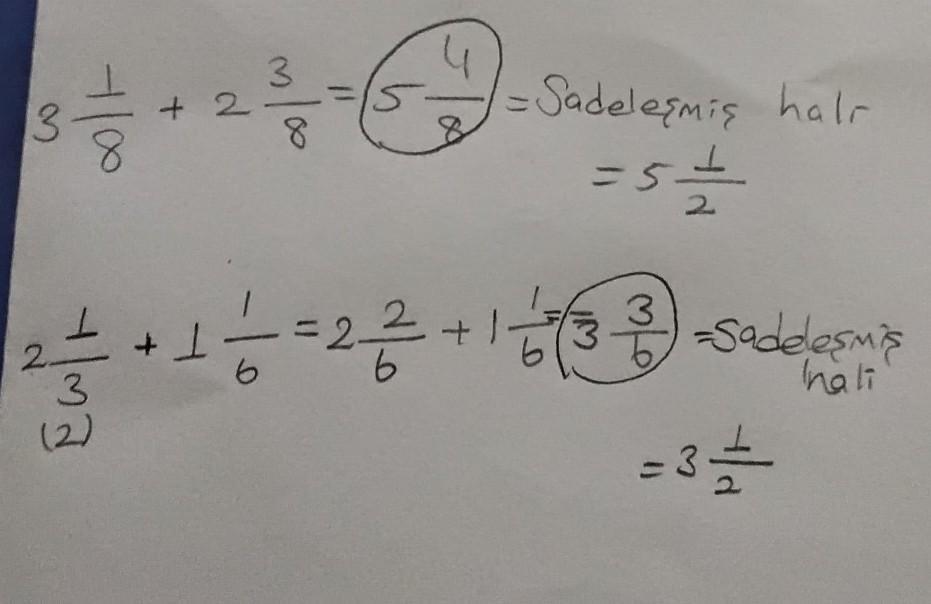 3 1/8 + 2 3/8 = 5 4/8 = Sadeleşmiş hali
= 5 1/2
2 1/3 + 1 1/6 = 2 2/6 + 1 1/6 = = 3 3/6 = Sadeleşmiş
(2)
hali
= 3 1/2